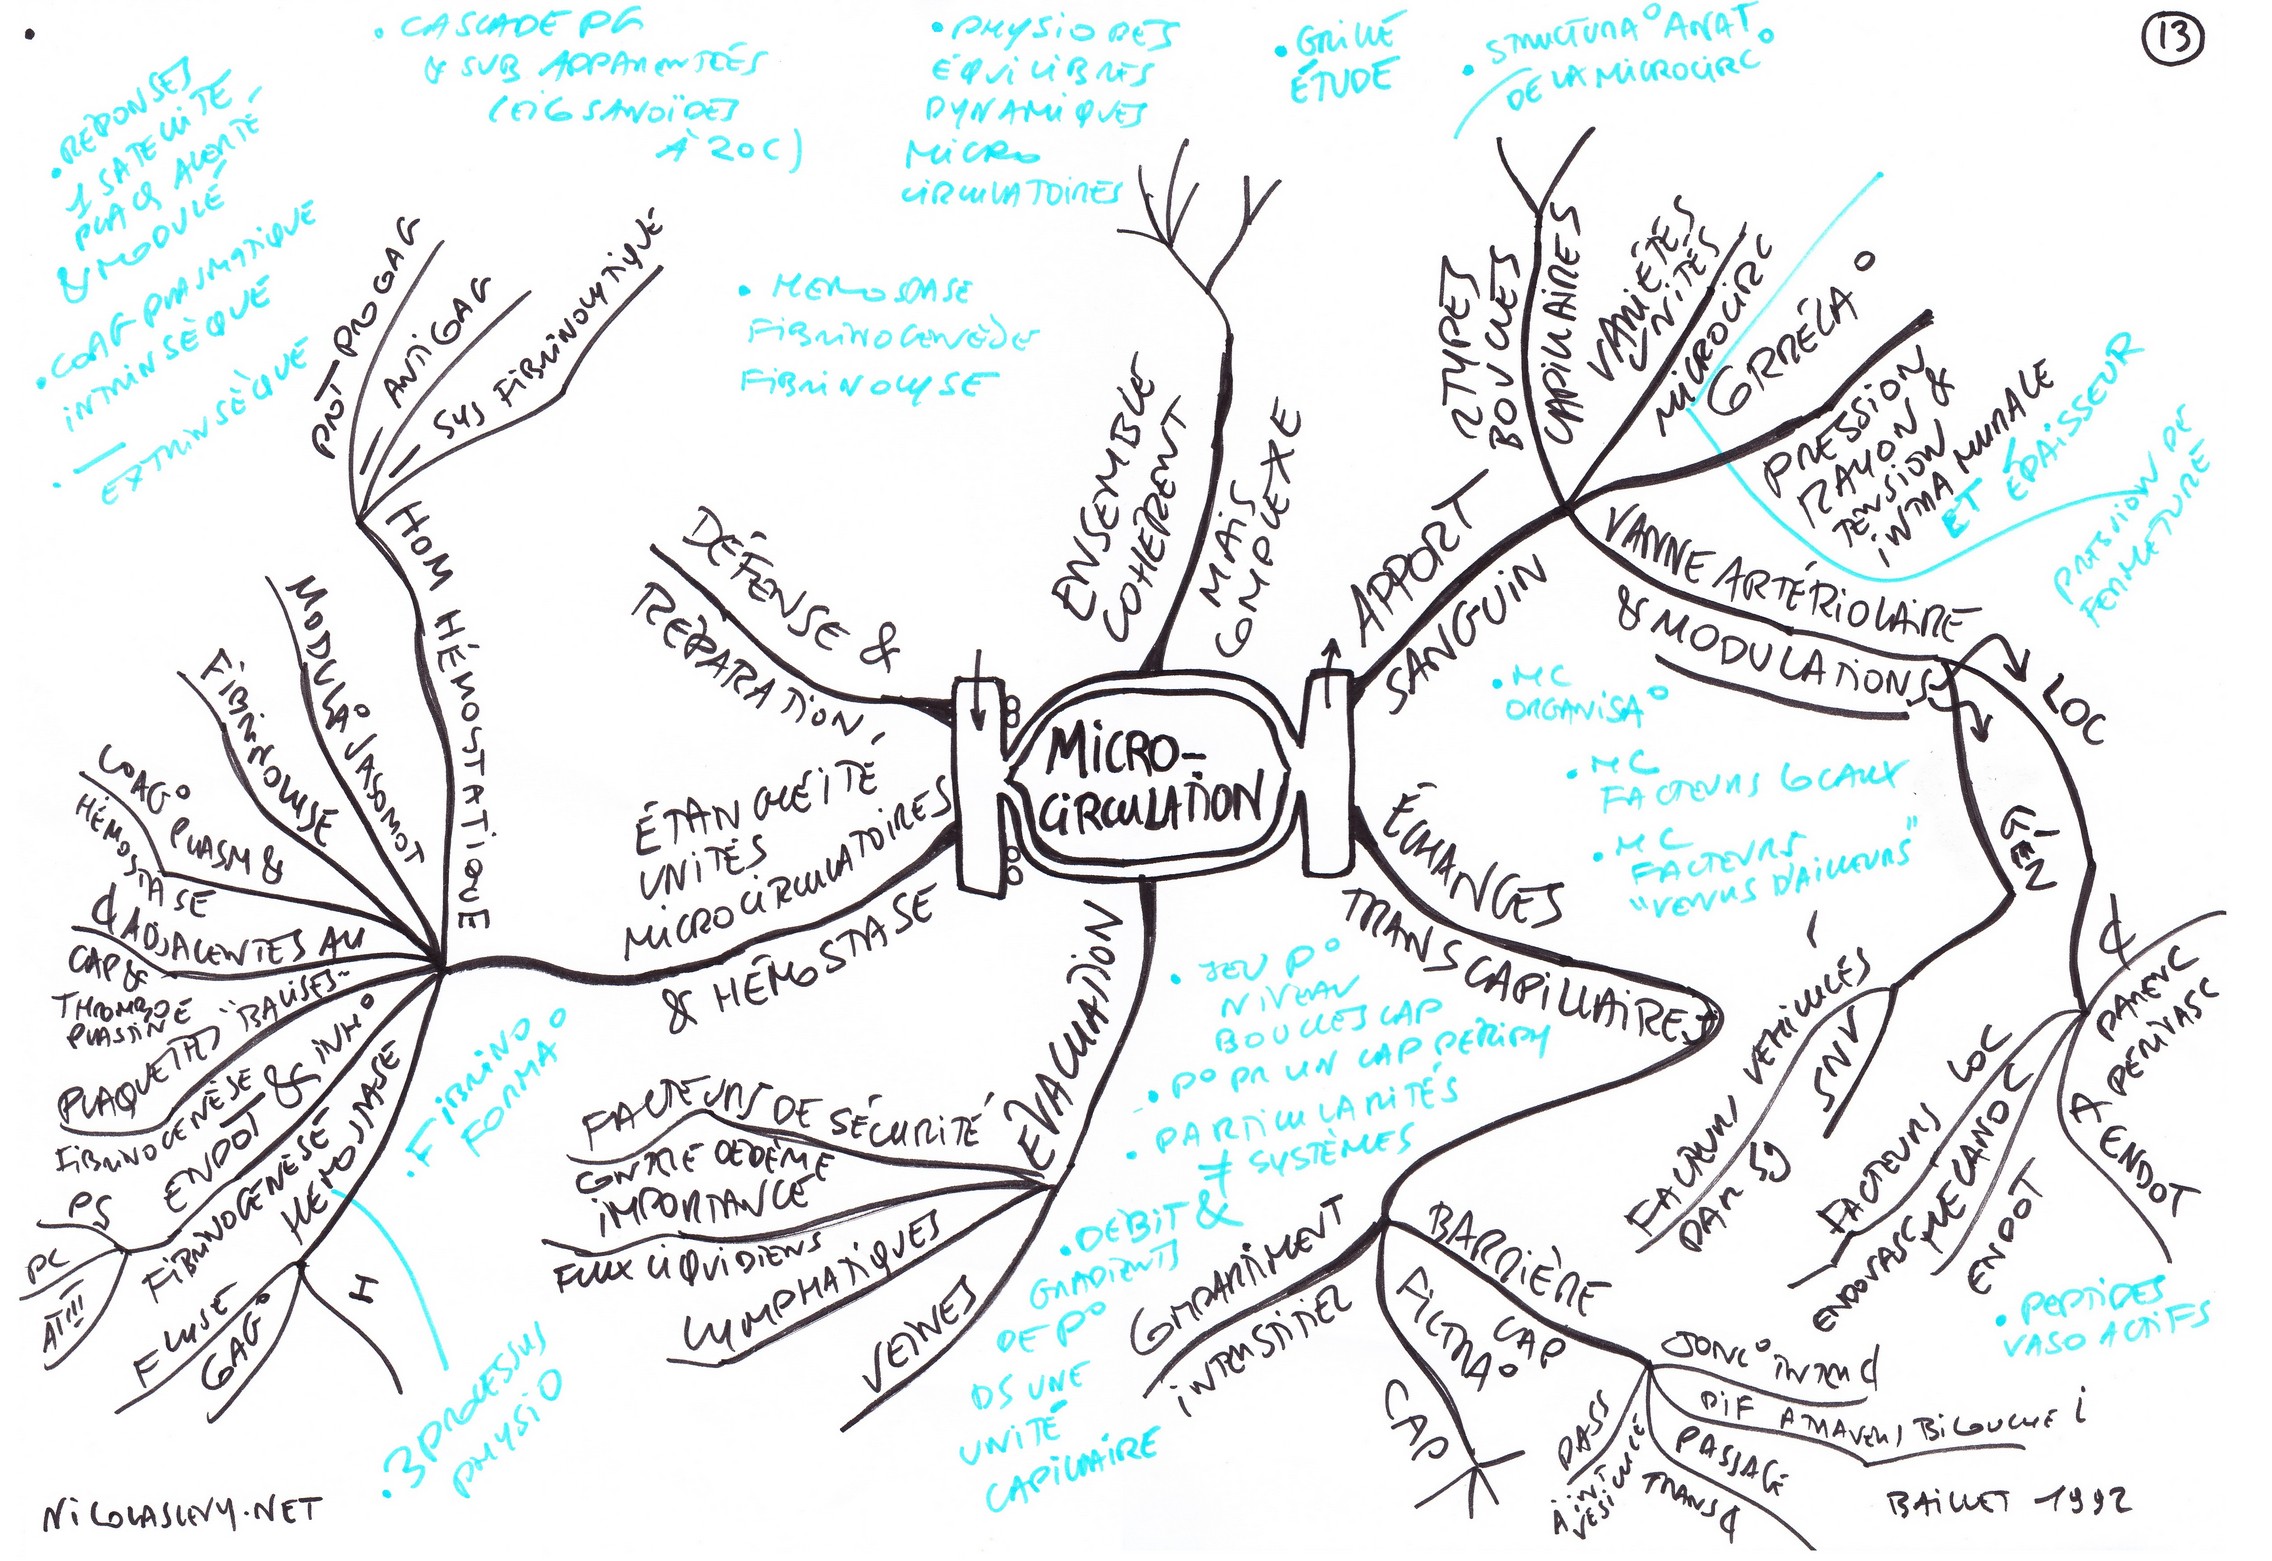 13
• CASCADE PG
& SUB APPARENTÉES
(EICOSANOÏDES
À 20C)
• PHYSIO DES
ÉQUILIBRES
DYNAMIQUES
MICRO
CIRCULATOIRES
• GRILLE
ÉTUDE
• STRUCTURA° ANAT
DE LA MICROCIRC°
• RÉPONSES
1 SATELLITE
PLAQ ALERTÉ
& MODULÉ
• COAG PLASMATIQUE
INTRINSÈQUE
• —
EXTRINSÈQUE
• HEMOSTASE
FIBRINOGENÈSE
FIBRINOLYSE
MICRO-
CIRCULATION
ENSEMBLE
COHÉRENT
MAIS
COMPLEXE
APPORT
SANGUIN
2 TYPES
BOUCLES
CAPILLAIRES
VARIÉTÉS
UNITÉS
MICROCIRC
CORRÉLA°
PRESSION
RAYON &
TENSION
INTRAMURALE
ET ÉPAISSEUR
PRESSION DE
FERMETURE
VANNE ARTÉRIOLAIRE
& MODULATIONS
LOC
GÉN
¢
PARENC
PÉRIVASC
A
ENDOT
LOC
FACTEURS
ENDOVASC
MÉCANO
¢
ENDOT
SNV
FACTEURS VÉHICULÉS
PAR SG
• PEPTIDES
VASOACTIFS
• MC
ORGANISA°
• MC
FACTEURS LOCAUX
• MC
FACTEURS
"VENUS D'AILLEURS"
ÉCHANGES
TRANSCAPILLAIRES
COMPARTIMENT
INTERSTITIEL
FILTRA°
CAP
BARRIÈRE
CAP
JONC° INTER ¢
DIF A TRAVERS BICOUCHE
PASSAGE
TRANS ¢
PASS
INT
VÉSICULE
• JEU P°
NIVEAU
BOUCLES CAP
• P° PR UN CAP PÉRIPH
• PARTICULARITÉS
≠ SYSTÈMES
• DÉBIT &
GRADIENTS
DE P°
DS UNE
UNITÉ
CAPILLAIRE
EVACUATION
FACTEURS DE SÉCURITÉ
CONTRE OEDÈME
IMPORTANCE
FLUX LIQUIDIENS
LYMPHATIQUES
VEINES
DÉFENSE &
RÉPARATION
ÉTANCHÉITÉ
UNITÉS
MICROCIRCULATOIRES
& HÉMOSTASE
HOM HÉMOSTATIQUE
PROT PROCOAG
ANTICOAG
SYS FIBRINOLYTIQUE
MODULA° VASOMOT
FIBRINOLYSE
COAG° PLASM &
HÉMOSTASE
¢ ADJACENTES AU
CAP &
THROMBO
PLASTINE
PLAQUETTES "BALISES"
FIBRINOGENÈSE & INH°
ENDOT
PS
PC
ATIII
FIBRINOGÉNÈSE
HEMOSTASE
F LYSE
COAG°
H
• FIBRINO
FORMA°
• 3 PROCESSUS
PHYSIO
NICOLASLEVY.NET
BAILLET 1992